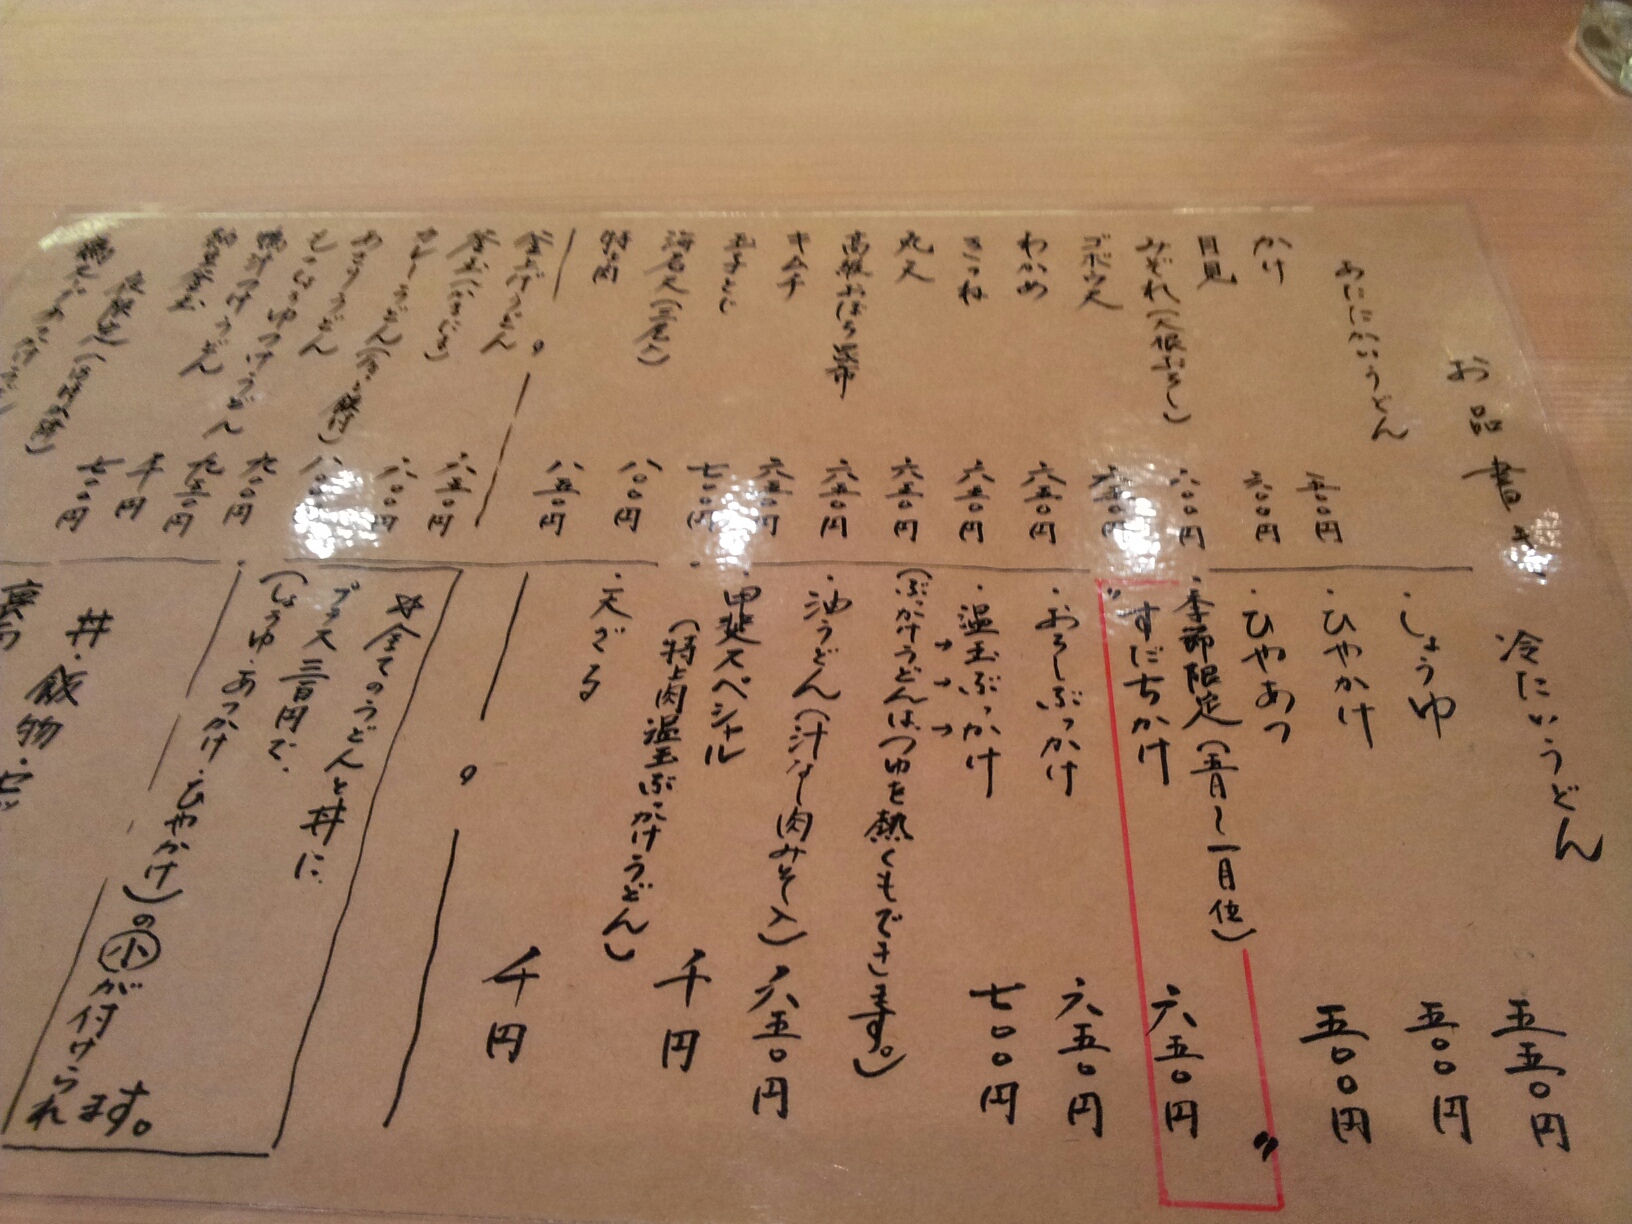 お品書き
あたたかいうどん
かけ 五〇〇円
月見 六〇〇円
みぞれ(大根おろし) 六〇〇円
ゴボウ天 六五〇円
わかめ 六五〇円
きつね 六五〇円
丸天 六五〇円
高級おぼろ昆布 六五〇円
キムチ 六五〇円
玉子とじ 七〇〇円
海老天(三尾入) 八〇〇円
特肉 八五〇円
釜上げうどん 六五〇円
釜玉(かまたま) 六〇〇円
カレーうどん 八〇〇円
九〇〇円
九五〇円
千円
七〇〇円
冷たいうどん
・しょうゆ 五五〇円
・ひやかけ 五〇〇円
・ひやあつ 五〇〇円
・季節限定(五月〜一月位)
すだちかけ 六五〇円
・おろしぶっかけ 六五〇円
・温玉ぶっかけ 七〇〇円
(ぶっかけうどんは、つゆを熱くもできます。)
・油うどん(汁なし肉みそ入) 六五〇円
・甲斐スペシャル
(特上肉温玉ぶっかけうどん) 千円
・天ざる 千円
全てのうどんと丼に
プラス三百円で、
(しょうゆ・あつかけ・ひやかけ)の小が付けられます。
丼・飯物・セッ